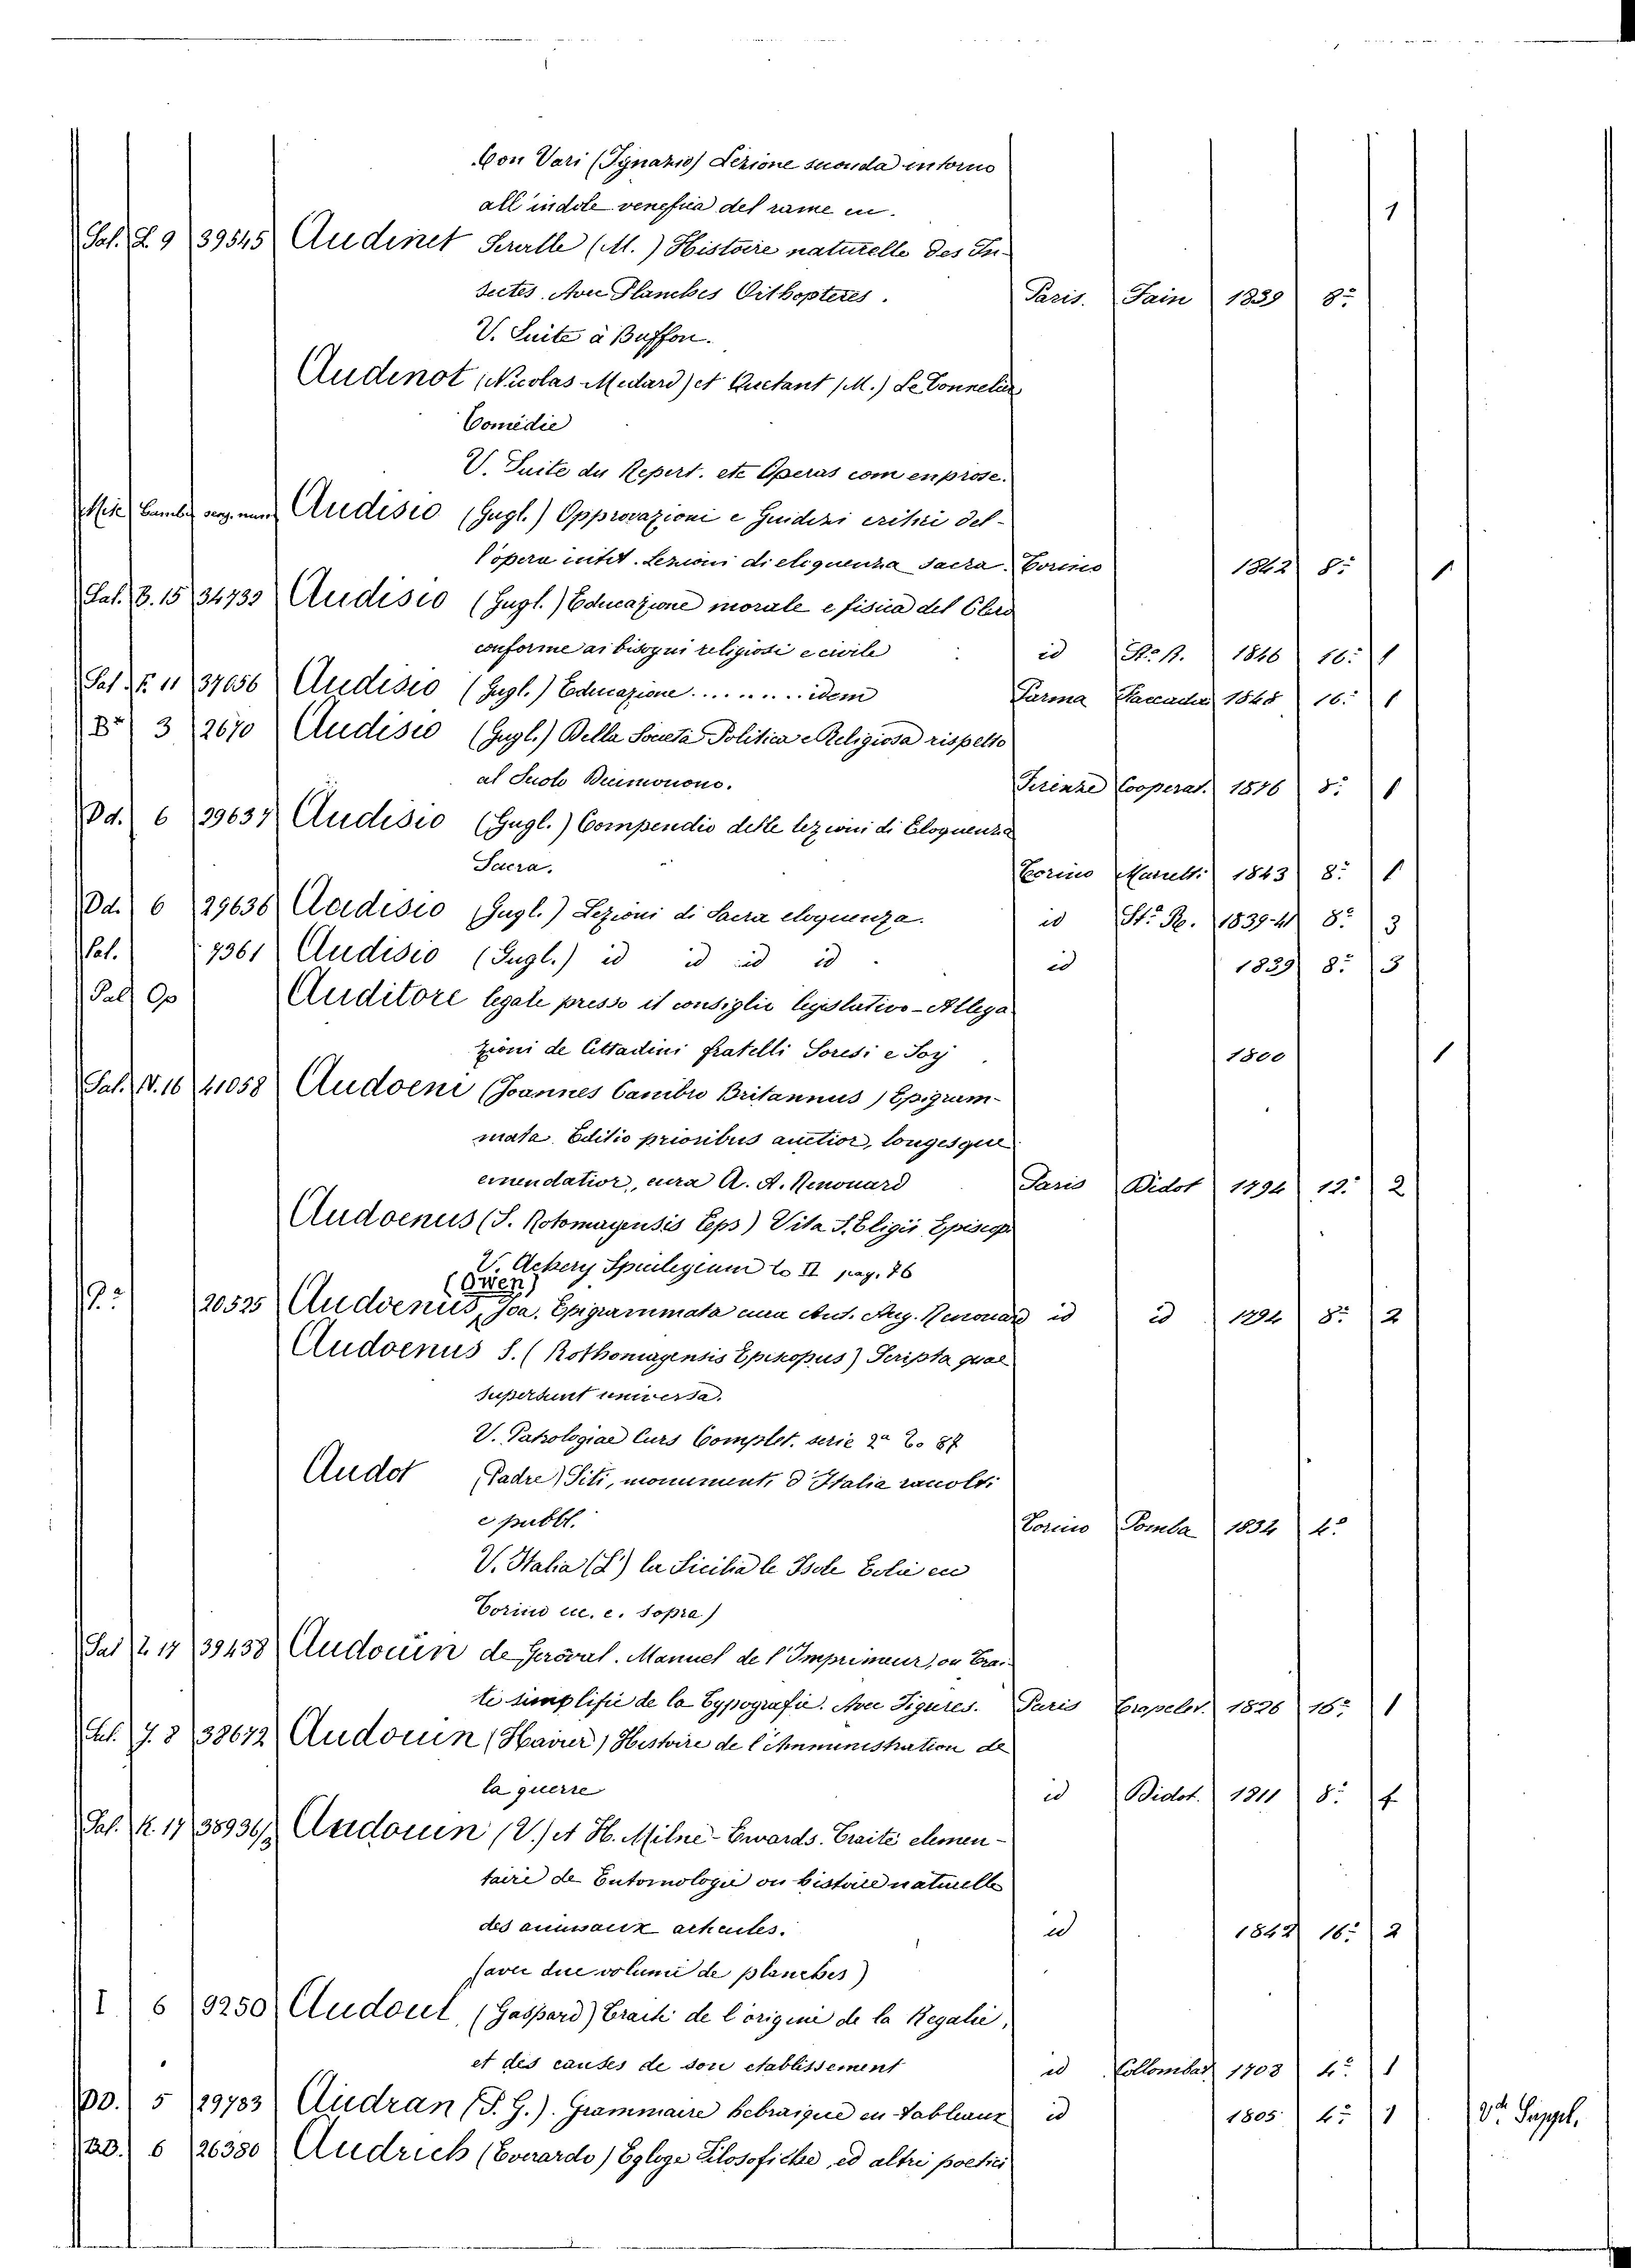 Con Vari (Ignazio) Lezione seconda intorno
all indole venefica del rame in. 1
Sal. L. 9 39545 Audinet Serville (M.) Histoire naturelle des In-
sectes. Avec Planches Orthopteres. Paris. Fain 1839 8º
V. Suite à Buffon.
Audinot (Nicolas Medard) et Quetant (M.) Le Tonnelier
Comédie
V. Suite du Repert. etc Operas com en prose.
Misc. Audisio (Gugl.) Approvazioni e Guidizi critici del-
l'opera intit. Lezioni di eloquenza sacra. Torino 1842 8º 1
Sal. B. 15 34739 Audisio (Gugl.) Educazione morale e fisica del Clero
conforme ai bisogni religiosi e civile id St. R. 1846 16º 1
Sal. F. 11 37656 Audisio (Gugl.) Educazione ........ idem Parma 1848 16º 1
Bº 3 2670 Audisio (Gugl.) Della Societa Politica e Religiosa rispetto
al Secolo Decimonono. Firenze Cooperat. 1876 8º 1
Dd. 6 29637 Audisio (Gugl.) Compendio delle lezioni di Eloquenza
Sacra. Torino Marietti 1843 8º 1
Dd. 6 29636 Audisio (Gugl.) Lezioni di Sacra eloquenza. id St. R. 1839-41 8º 3
Sal. 7361 Audisio (Gugl.) id id id id. id 1839 8º 3
Sal. Op Auditore legale presso il consiglio legislativo - Allega
zioni de Cittadini fratelli Soresi e Soy 1800 1
Sal. N. 16 41058 Audoeni (Joannes Cambro Britannus) Epigram-
mata. Editio prioribus auctior, longesque
emendatior, cura A. A. Renouard Paris Didot 1794 12º 2
Audoenus (S. Rotomagensis Eps) Vita S. Eligii Episcopi
V. Achery Spicilegium to II pag. 76
(Owen)
Pº 20525 Audoenus, Joa. Epigrammata cura Ant. Aug. Renouard id id 1794 8º 2
Audoenus S. (Rothomagensis Episcopus) Scripta quae
supersunt universa.
V. Patrologiae Curs Complet. serie 2ª to. 87
Audot (Padre) Siti, monumenti d'Italia raccolti
e pubbl. Torino Pomba 1834 4º
V. Italia (L') la Sicilia le Isole Eolie ec
Torino ec. c. sopra)
Sal. Z. 17 39438 Audouin de Geronval. Manuel de l'Imprimeur, ou Trai-
té simplifié de la Typografie. Avec Figures. Paris Crapelet. 1826 16º 1
Sal. J. 8 38672 Audouin (Xavier) Histoire de l'Amministration de
la guerre id Didot. 1811 8º 4
Sal. K. 17 38936/2 Audouin (V.) et H. Milne-Ewards. Traité elemen-
taire de Entomologie ou histoire naturelle
des animaux id 1842 16º 2
(avec due volumi de planches)
I 6 9250 Audoul, (Gaspard) Traité de l'origine de la Regalie,
et des causes de son etablissement id Collombat 1708 4º 1
DD. 5 29783 Audran (P. G.). Grammaire hebraique en tableaux id 1805 4º 1 Vd. Suppl.
BD. 6 26380 Audrich (Everardo) Egloge Filosofiche, ed altri poetici